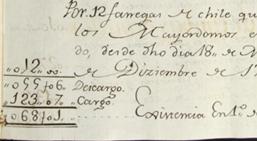 Por 12 fanegas de chile qu
los Mayordomos e
do, desde dho dia 18 de
"012"00 de Diziembre de 17
"055"06 Descargo.
"123"07 Cargo.
"068"01 Existencia En 1º de